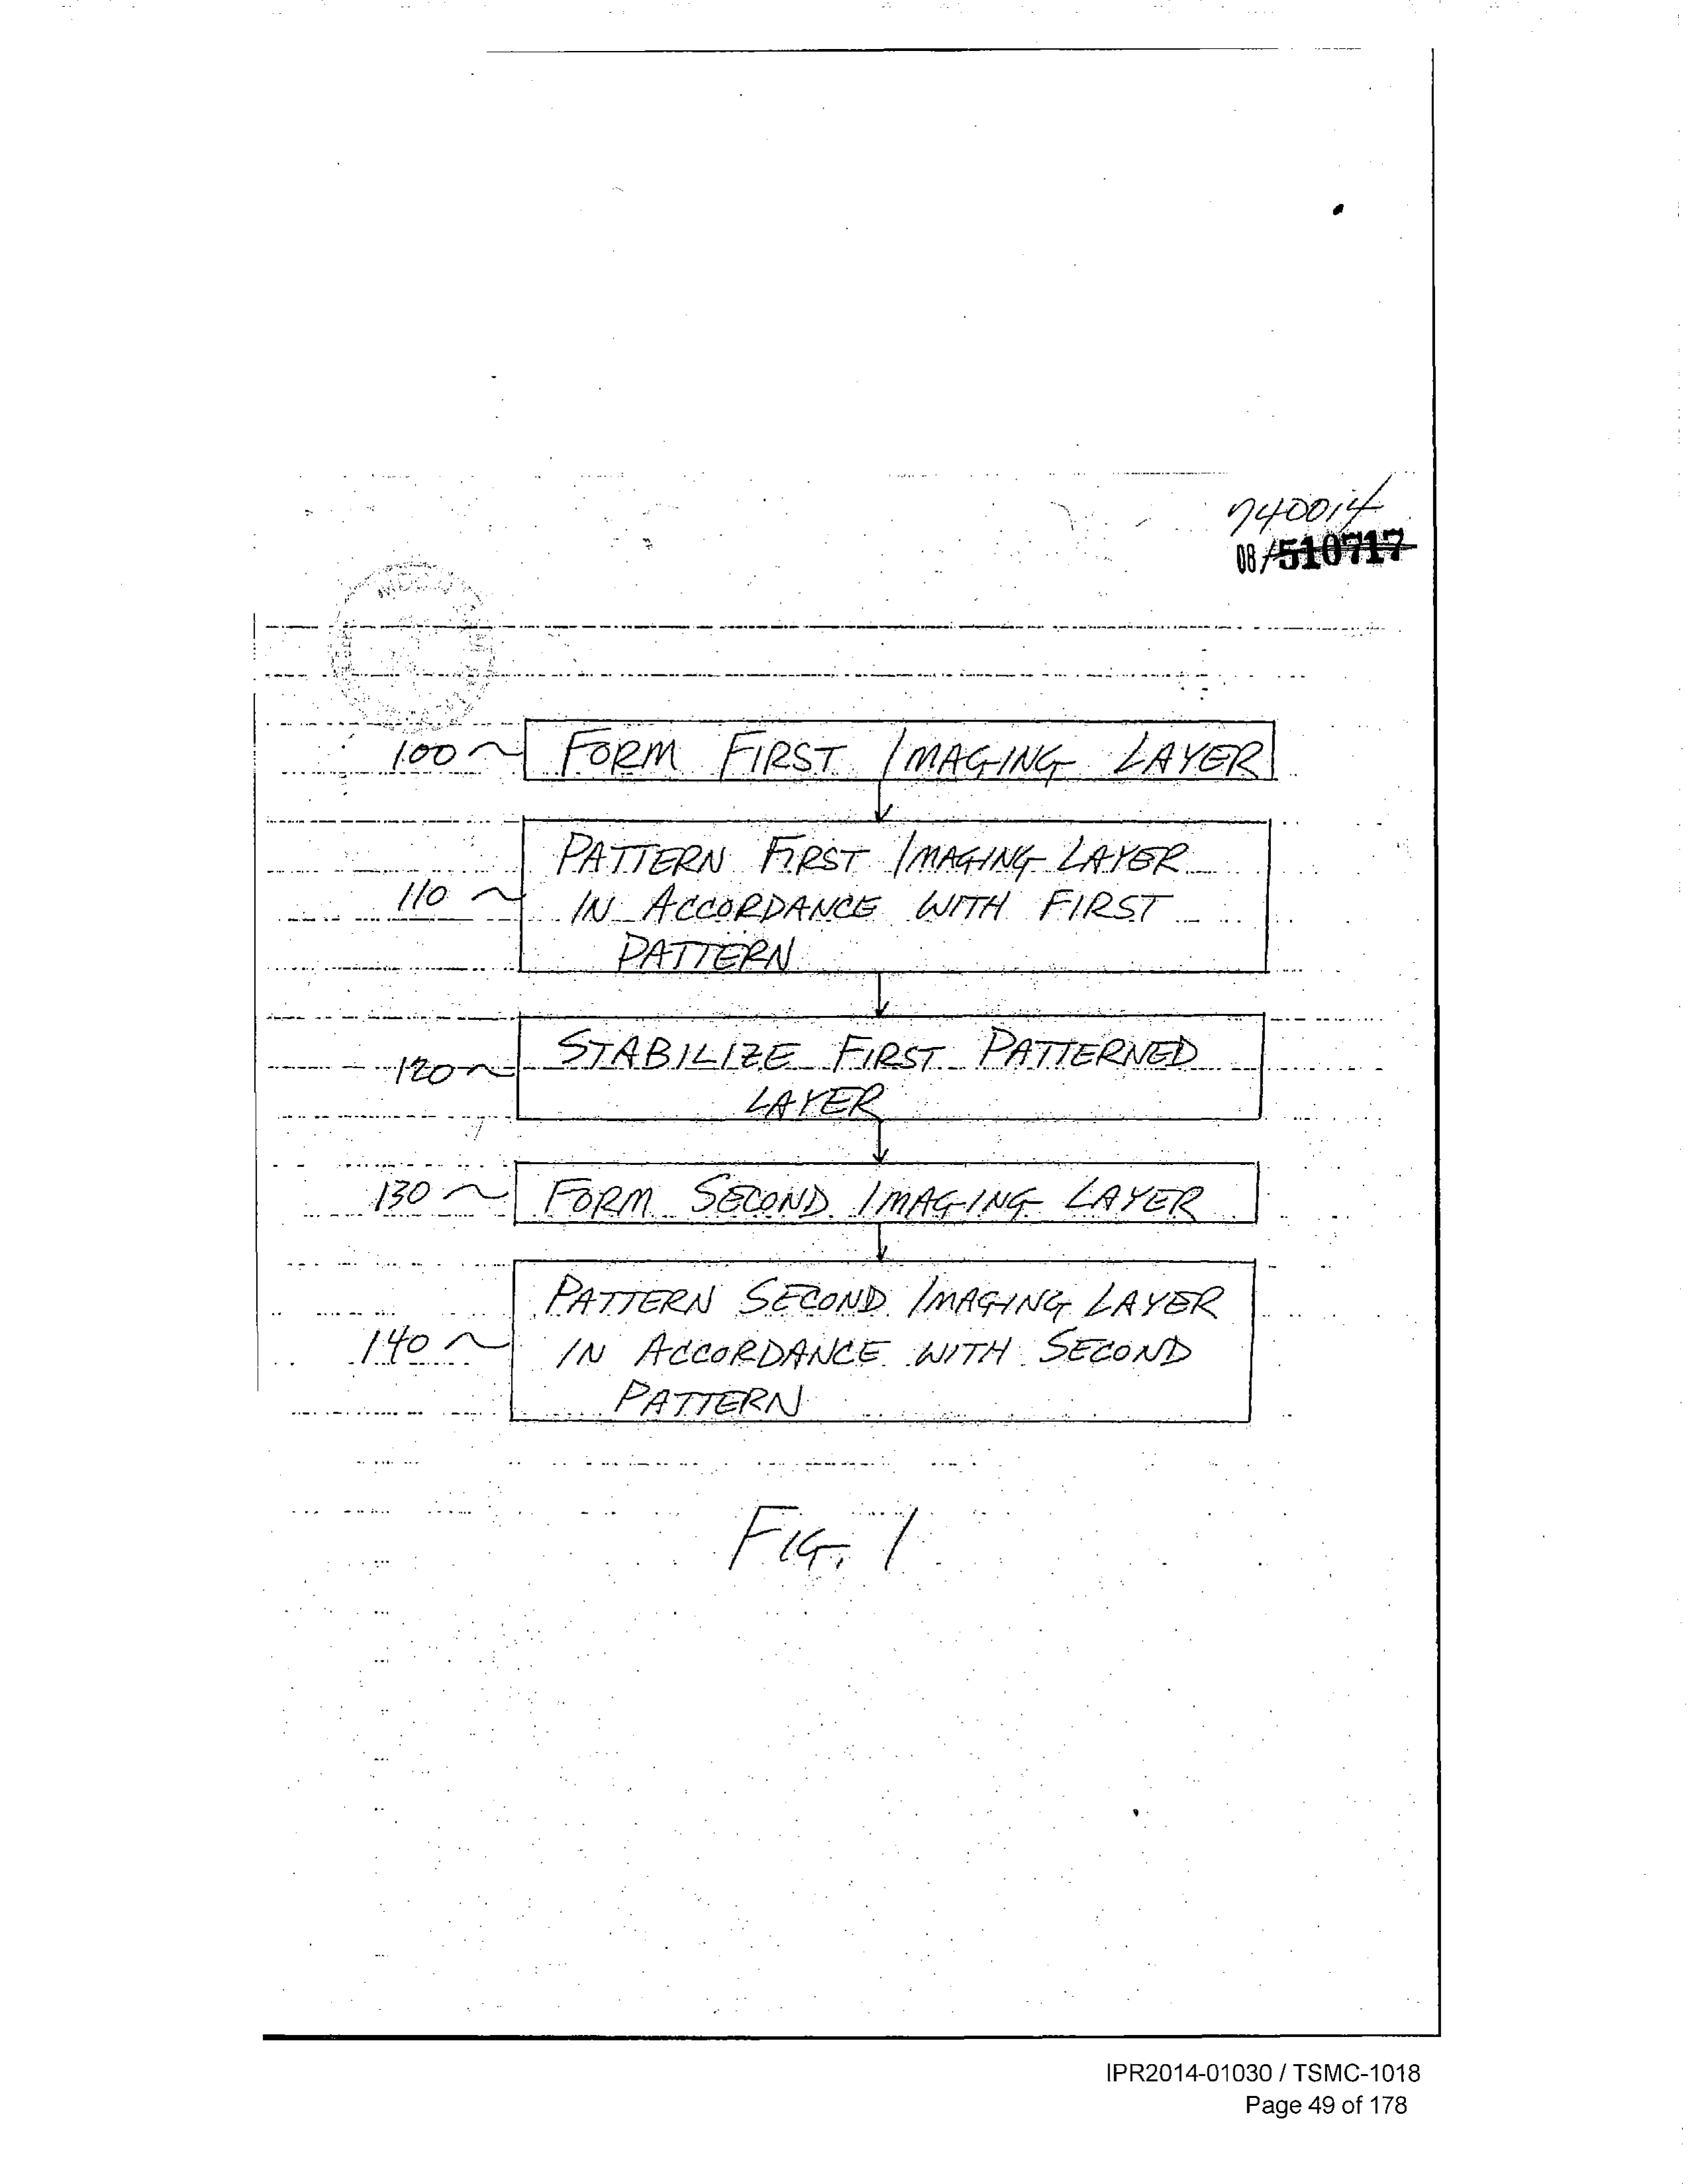 740014
08/510717
100 FORM FIRST IMAGING LAYER
PATTERN FIRST IMAGING LAYER
110 IN ACCORDANCE WITH FIRST
PATTERN
120 STABILIZE FIRST PATTERNED
LAYER
130 FORM SECOND IMAGING LAYER
PATTERN SECOND IMAGING LAYER
140 IN ACCORDANCE WITH SECOND
PATTERN
FIG. 1
IPR2014-01030 / TSMC-1018
Page 49 of 178